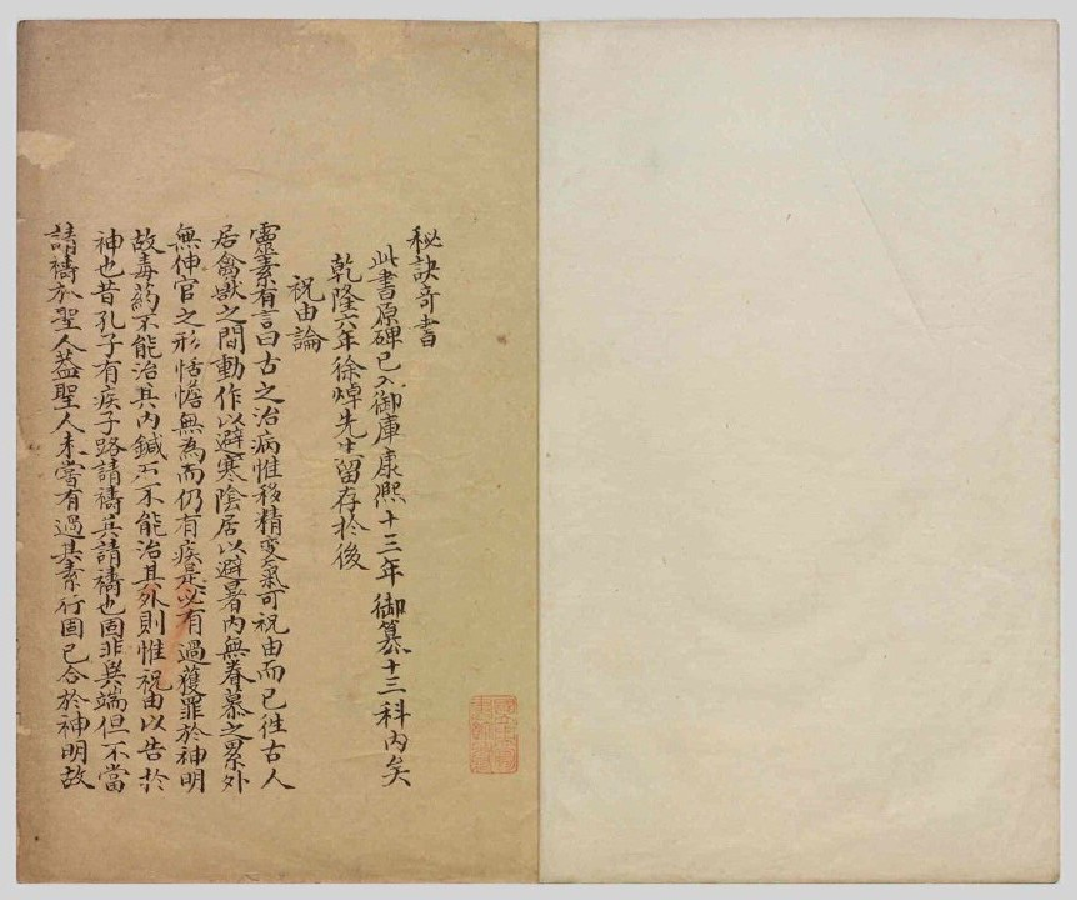 秘訣奇書
此書原碑已入御庫康熙十三年御纂十三科內矣
乾隆六年徐焯先生留存於後
祝由論
靈素有言曰古之治病惟移精變氣可祝由而已徃古人
居禽獸之間動作以避寒陰居以避暑內無眷慕之累外
無伸官之形恬憺無為而仍有疾是必有過獲罪於神明
故毒藥不能治其內鍼石不能治其外則惟祝由以告於
神也昔孔子有疾子路請禱其請禱也固非異端但不當
請禱於聖人葢聖人未嘗有過其素行固已合於神明故